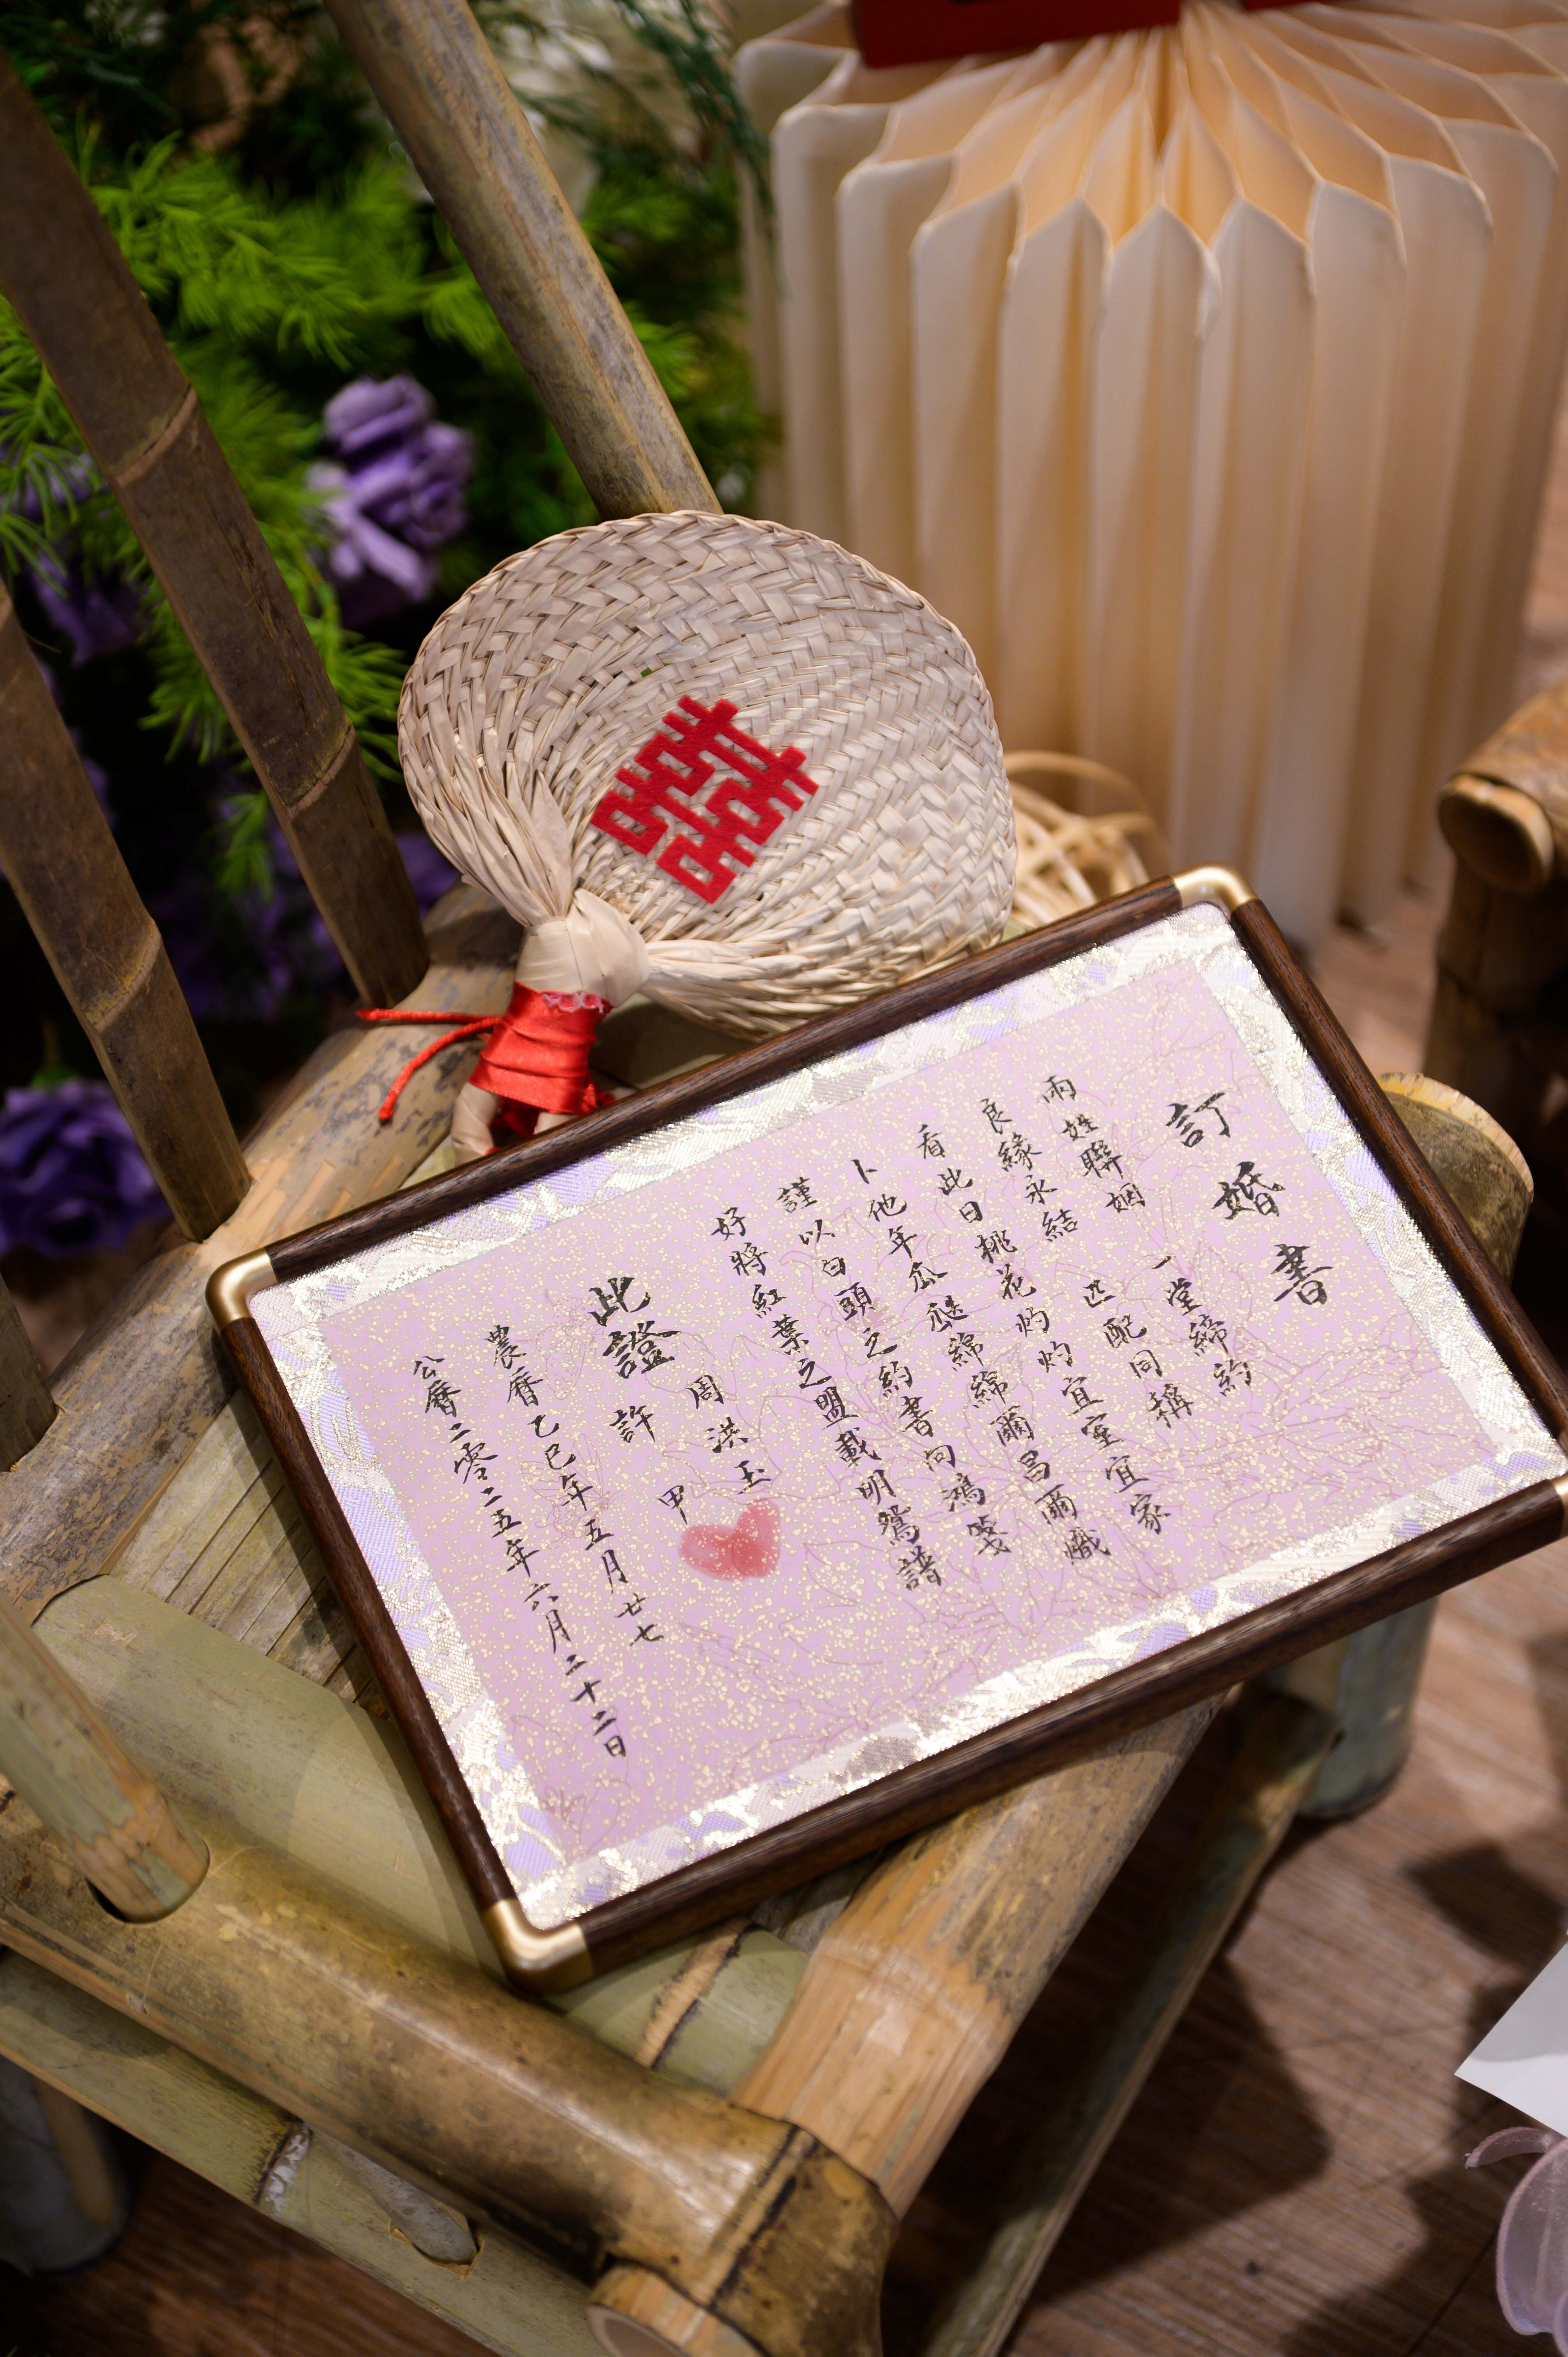 囍
訂婚書
兩姓聯姻 一堂締約
良緣永結 匹配同稱
看此日桃花灼灼宜室宜家
卜他年瓜瓞綿綿爾昌爾熾
謹以白頭之約書向鴻箋
好將紅葉之盟載明鴛譜
此證
周洪玉
許甲
農曆乙巳年五月廿七
公曆二零二五年六月二十二日